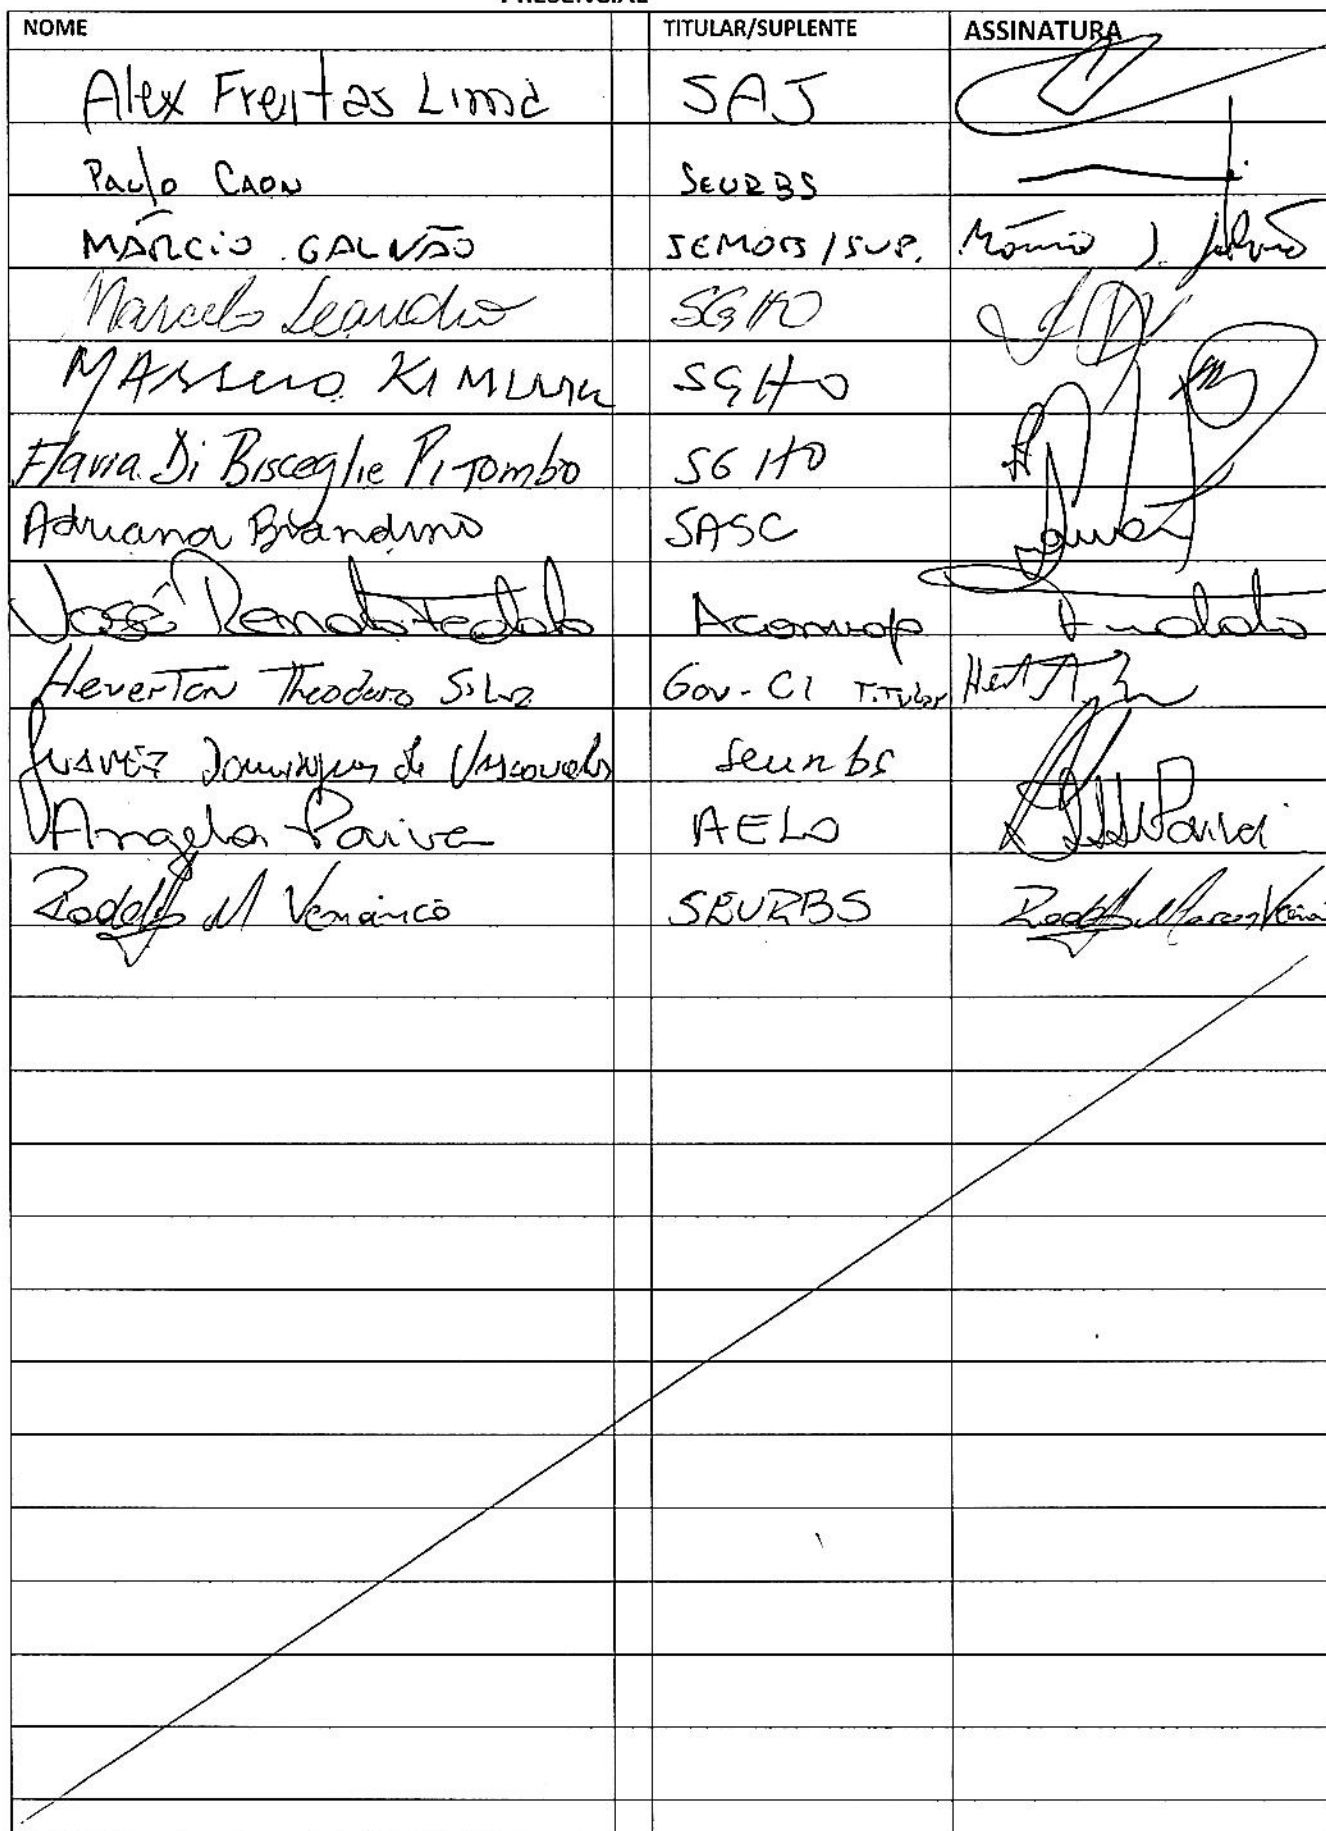 PRESENCIAL
NOME TITULAR/SUPLENTE ASSINATURA
Alex Freitas Lima SAJ
Paulo Caon SEURBS
MÁRCIO GALVÃO SEMOB/SUP.
Marcelo Leandro SGHO
KIMURA SGHO
Flavia Di Bisceglie Pitombo SGHO
Adriana Brandino SASC
José Renato Fedato Aconvap Fedato
Heverton Theodoro Silva Gov-CI Titular
Juarez Domingues de Vasconcelos Seurbs
Angela Paiva AELO Paiva
Rodolfo M Venâncio SEURBS Rodolfo Marcos